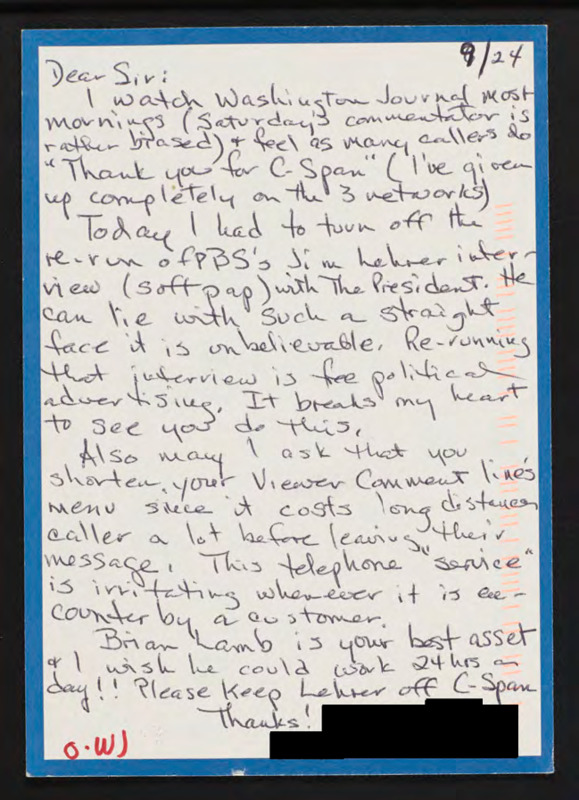 9/24
Dear Sir:
I watch Washington Journal most
mornings (Saturday's commentator is
rather biased) & feel as many callers do
"Thank you for C-Span" (I've given
up completely on the 3 networks)
Today I had to turn off the
re-run of PBS's Jim Lehrer inter-
view (soft pap) with The President. He
can lie with such a straight
face it is unbelievable. Re-running
that interview is free political
advertising. It breaks my heart
to see you do this.
Also may I ask that you
shorten your Viewer Comment line's
menu since it costs long distance
caller a lot before leaving their
message. This telephone "service"
is irritating whenever it is en-
counter by a customer.
Brian Lamb is your best asset
& I wish he could work 24 hrs a
day!! Please keep Lehrer off C-Span
Thanks!
O.WJ